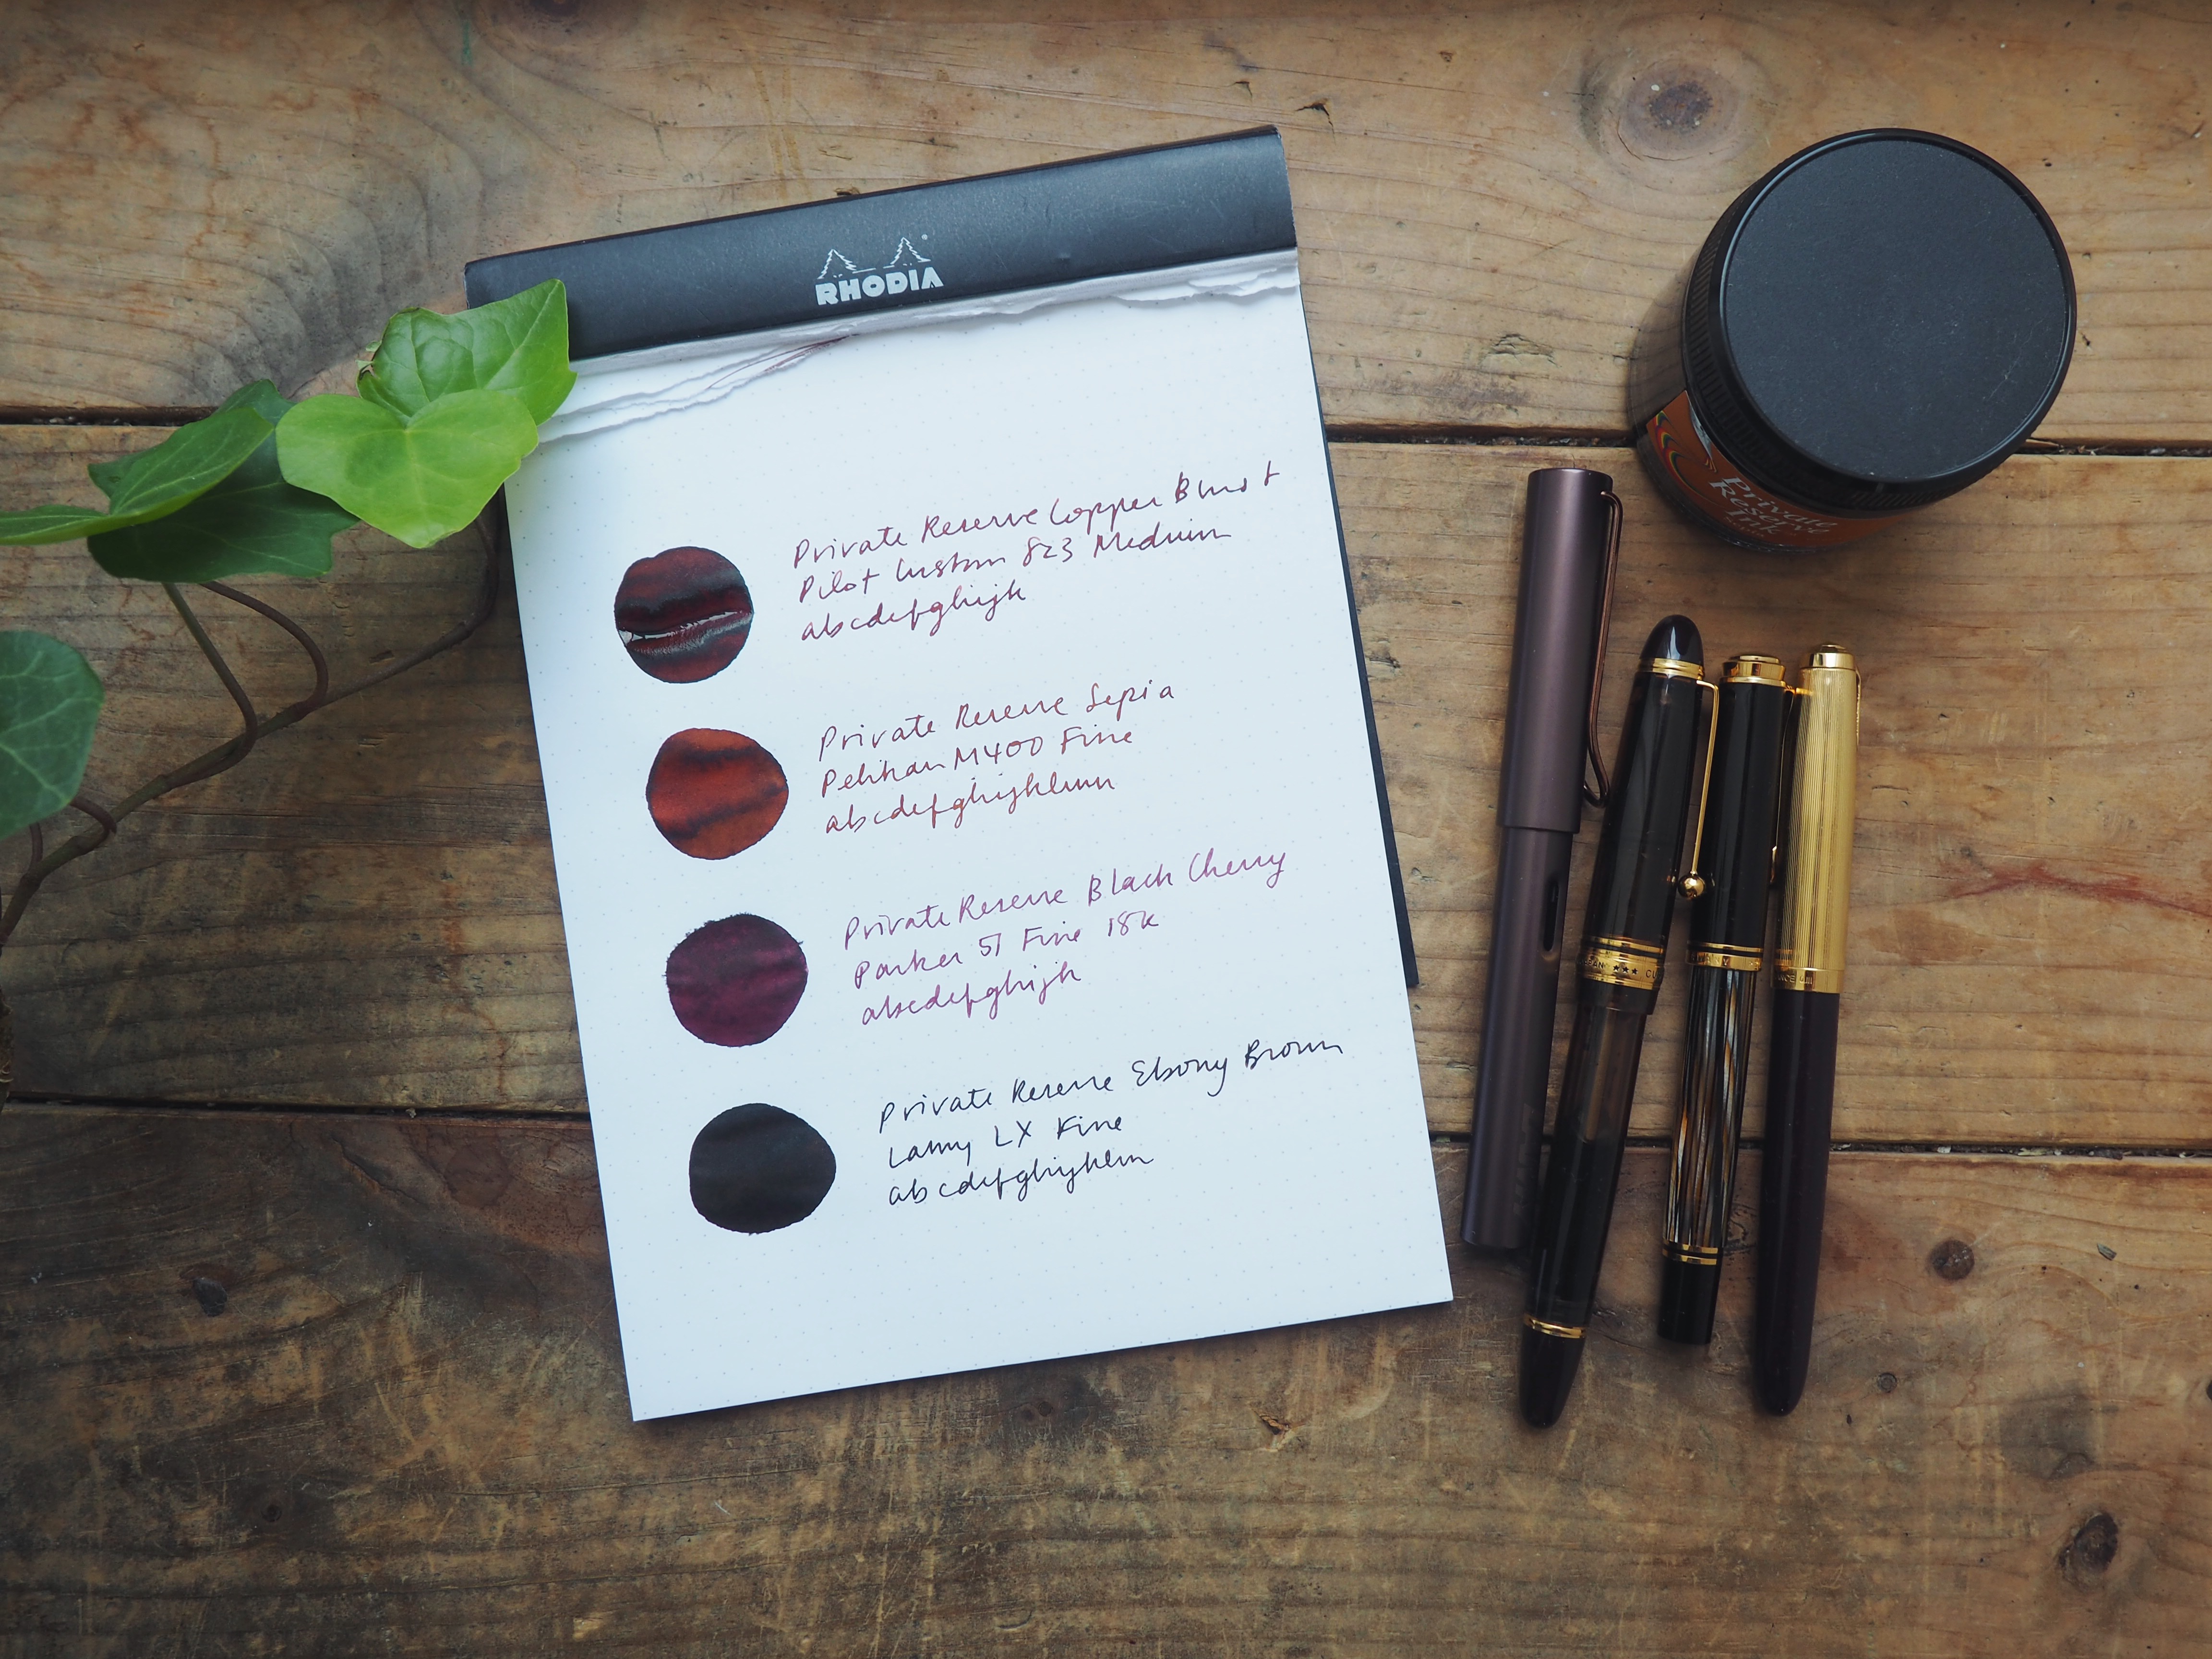 RHODIA
Private Reserve Copper Burst
Pilot Custom 823 Medium
abcdefghijk
Private Reserve Sepia
Pelikan M400 Fine
abcdefghijklmn
Private Reserve Black Cherry
Parker 51 Fine 18k
abcdefghijk
Private Reserve Ebony Brown
Lamy LX Fine
abcdefghijklm
Private
Reserve
Ink